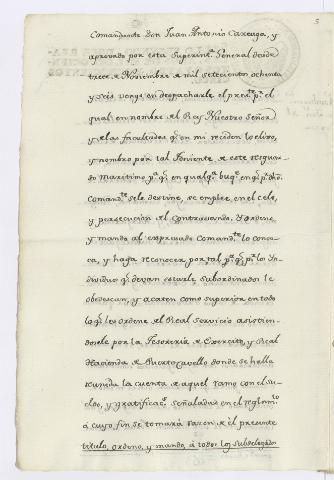 5
Comandante don Juan Antonio Careaga, y
aprovado por esta Superintª General desde
trece de Noviembre de mil setecientos ochenta
y seis vengo en despacharle el presᵗᵉ pʳ el
qual en nombre del Rey Nuestro Señor
y de las facultades qᵉ en mi residen lo elixo,
y nombro por tal Teniente de este resguar-
do maritimo pª qᵉ en qualqª buqᵉ en qᵉ pʳ dho
Comandᵗᵉ se le destine, se emplee, en el celo,
y persecucion del Contravando. Y ordeno
y mando al expresado Comandᵗᵉ lo conoz-
ca, y haga reconocer por tal pª qᵉ pʳ lo In-
dividuos qᵉ devan estarle subordinados le
obedescan, y acaten como superior en todo
lo qᵉ les ordene del Real servicio asistien-
dosele por la Tesoreria de Exercito, y Real
Hacienda de Puerto cavello donde se halla
reunida la cuenta de aquel ramo con el su-
eldo, y gratificacⁿ señaladas en el reglamᵗᵒ
á cuyo fin se tomará razon de el presente
titulo, ordeno, y mando, á todos los Subdelegados